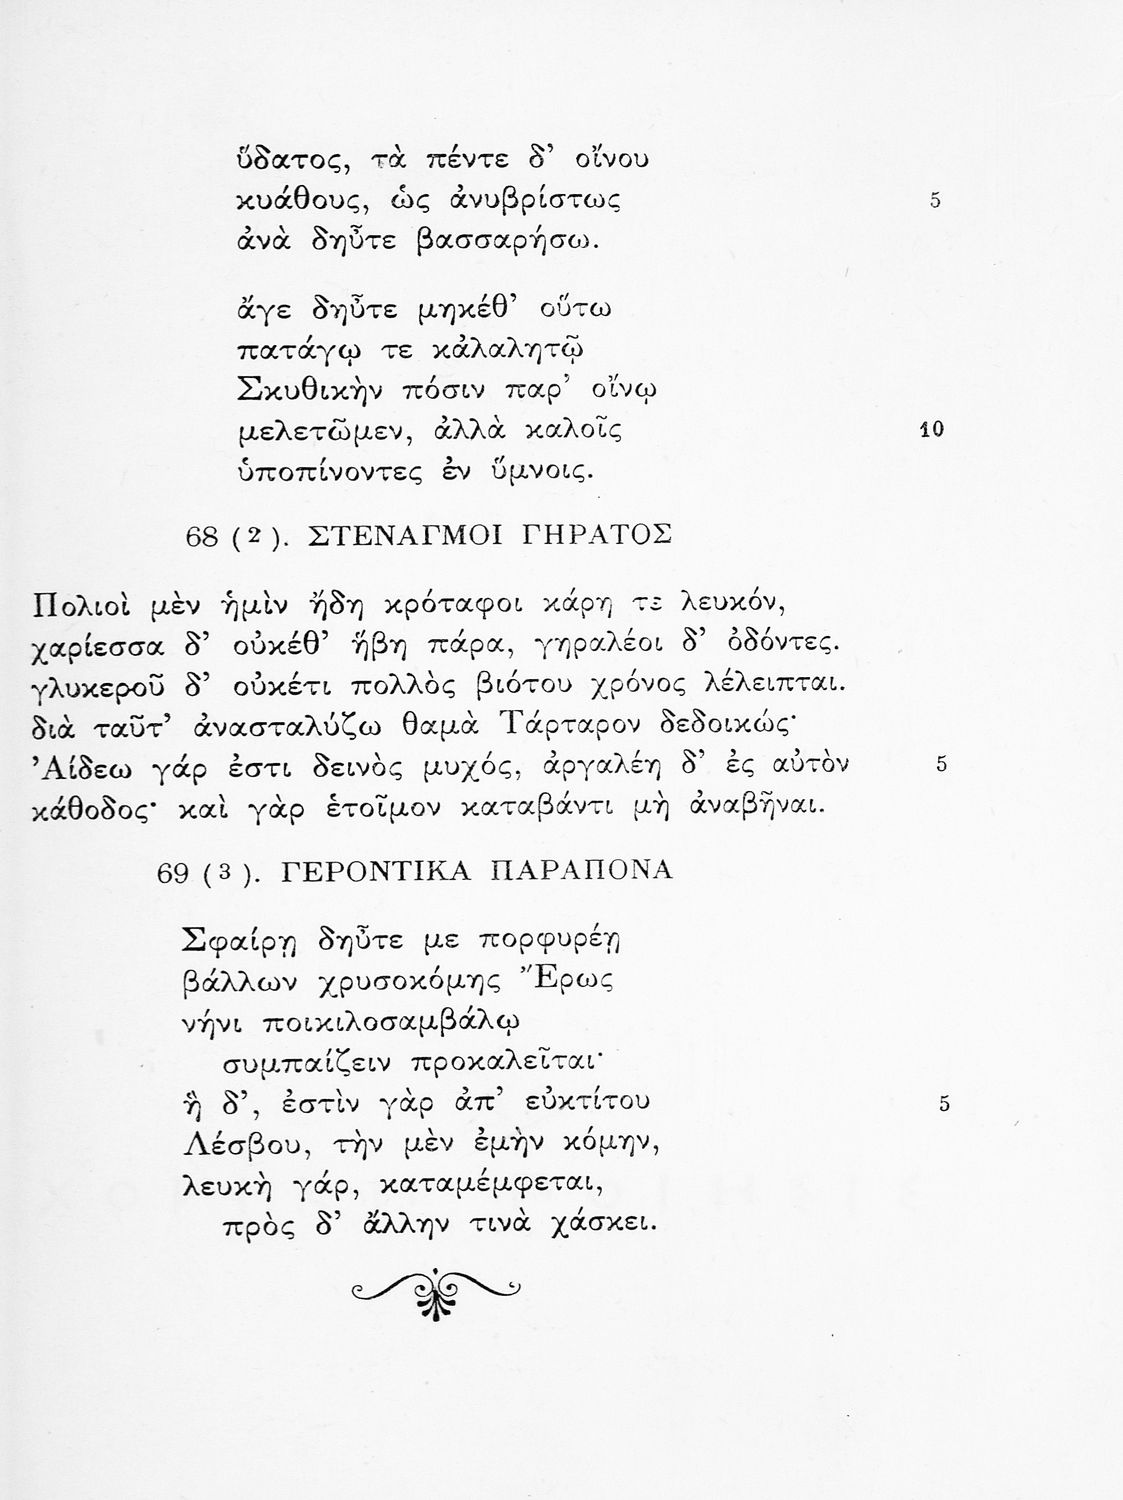 ὕδατος, τὰ πέντε δ' οἴνου
κυάθους, ὡς ἀνυβρίστως 5
ἀνὰ δηὖτε βασσαρήσω.
ἄγε δηὖτε μηκέθ' οὕτω
πατάγῳ τε κἀλαλητῷ
Σκυθικὴν πόσιν παρ' οἴνῳ
μελετῶμεν, ἀλλὰ καλοῖς 10
ὑποπίνοντες ἐν ὕμνοις.
68 (2). ΣΤΕΝΑΓΜΟΙ ΓΗΡΑΤΟΣ
Πολιοὶ μὲν ἡμὶν ἤδη κρόταφοι κάρη τε λευκόν,
χαρίεσσα δ' οὐκέθ' ἥβη πάρα, γηραλέοι δ' ὀδόντες.
γλυκεροῦ δ' οὐκέτι πολλὸς βιότου χρόνος λέλειπται.
διὰ ταῦτ' ἀνασταλύζω θαμὰ Τάρταρον δεδοικώς·
Ἀίδεω γάρ ἐστι δεινὸς μυχός, ἀργαλέη δ' ἐς αὐτὸν 5
κάθοδος· καὶ γὰρ ἑτοῖμον καταβάντι μὴ ἀναβῆναι.
69 (3). ΓΕΡΟΝΤΙΚΑ ΠΑΡΑΠΟΝΑ
Σφαίρῃ δηὖτε με πορφυρέῃ
βάλλων χρυσοκόμης Ἔρως
νήνι ποικιλοσαμβάλῳ
συμπαίζειν προκαλεῖται·
ἣ δ', ἐστὶν γὰρ ἀπ' εὐκτίτου 5
Λέσβου, τὴν μὲν ἐμὴν κόμην,
λευκὴ γάρ, καταμέμφεται,
πρὸς δ' ἄλλην τινὰ χάσκει.